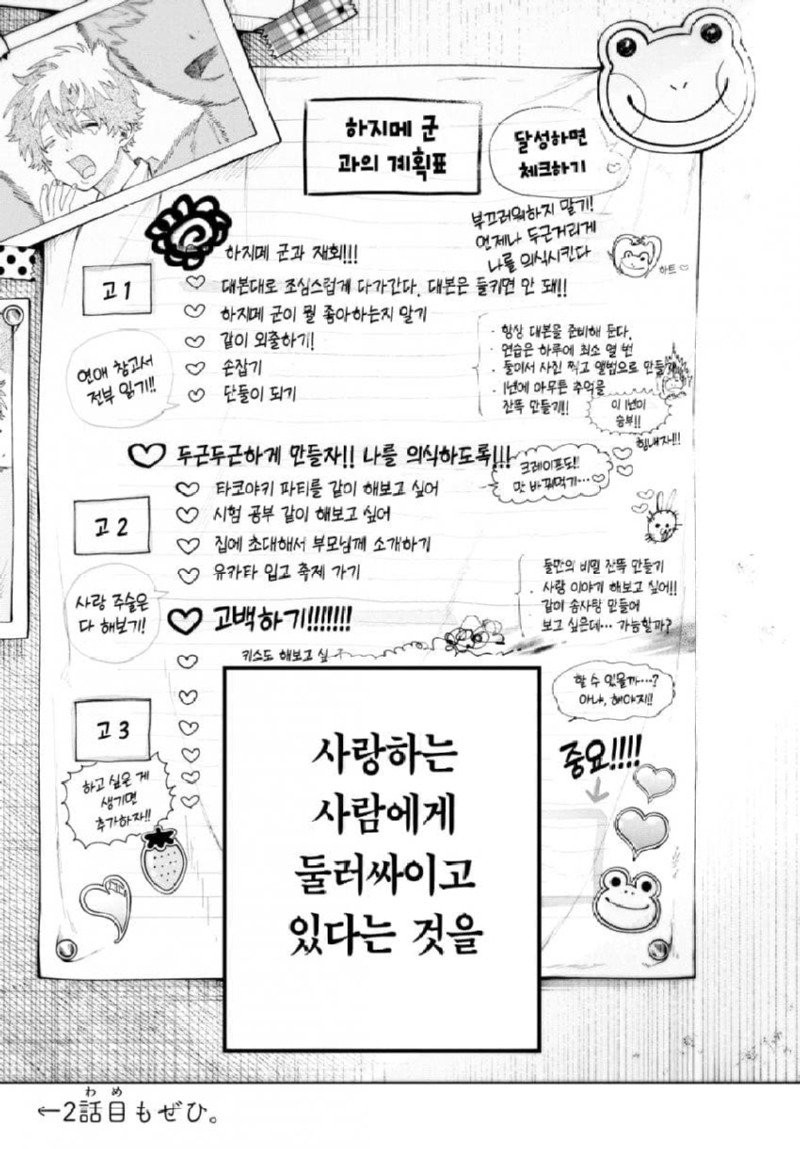 하지메 군
과의 계획표
달성하면
체크하기
부끄러워하지 말기!
언제나 두근거리게
나를 의식시킨다
하트
고 1
하지메 군과 재회!!!
대본대로 조심스럽게 다가간다. 대본은 들키면 안 돼!!
하지메 군이 뭘 좋아하는지 알기
같이 외출하기!
손잡기
단둘이 되기
연애 참고서
전부 읽기!!
· 항상 대본을 준비해 둔다.
· 연습은 하루에 최소 열 번
· 둘이서 사진 찍고 앨범으로 만들기
· 1년에 아무튼 추억을
잔뜩 만들기!!
이 1년이
승부!!
힘내자!!!
두근두근하게 만들자!! 나를 의식하도록!!!
크레이프도!!
맛 바꿔먹기...
고 2
타코야키 파티를 같이 해보고 싶어
시험 공부 같이 해보고 싶어
집에 초대해서 부모님께 소개하기
유카타 입고 축제 가기
사랑 주술은
다 해보기!
둘만의 비밀 잔뜩 만들기
· 사랑 이야기 해보고 싶어!!
같이 솜사탕 만들어
보고 싶은데... 가능할까?
고백하기!!!!!!!
키스도 해보고 싶
할 수 있을까...?
아냐, 해야지!!
고 3
하고 싶은 게
생기면
추가하자!!
중요!!!!
사랑하는
사람에게
둘러싸이고
있다는 것을
わめ
←2話目もぜひ。